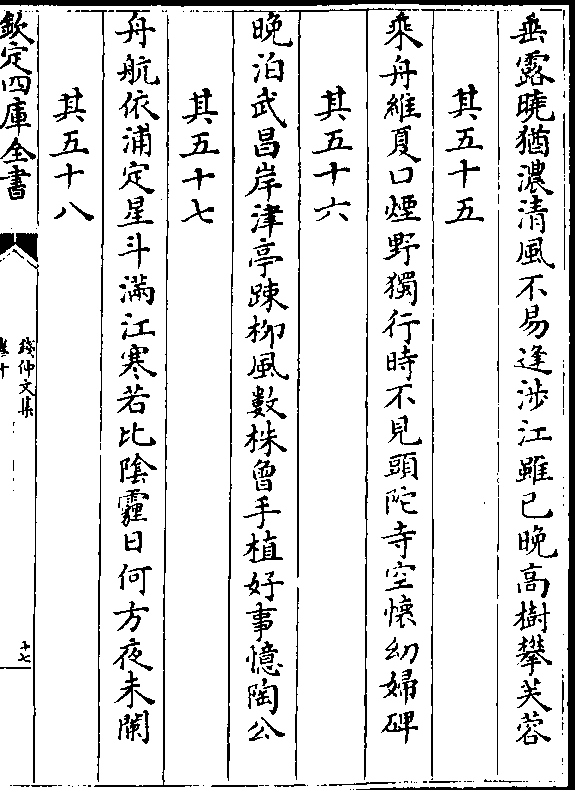 垂露曉猶濃清風不易逢渉江雖已晚高樹攀芙蓉
其五十五
乘舟維夏口煙野獨行時不見頭陀寺空懐幼婦碑
其五十六
晚泊武昌岸津亭踈柳風數株曾手植好事憶陶公
其五十七
舟航依浦定星斗滿江寒若比陰霾日何方夜未闌
其五十八
欽定四庫全書
錢仲文集
卷十
十七